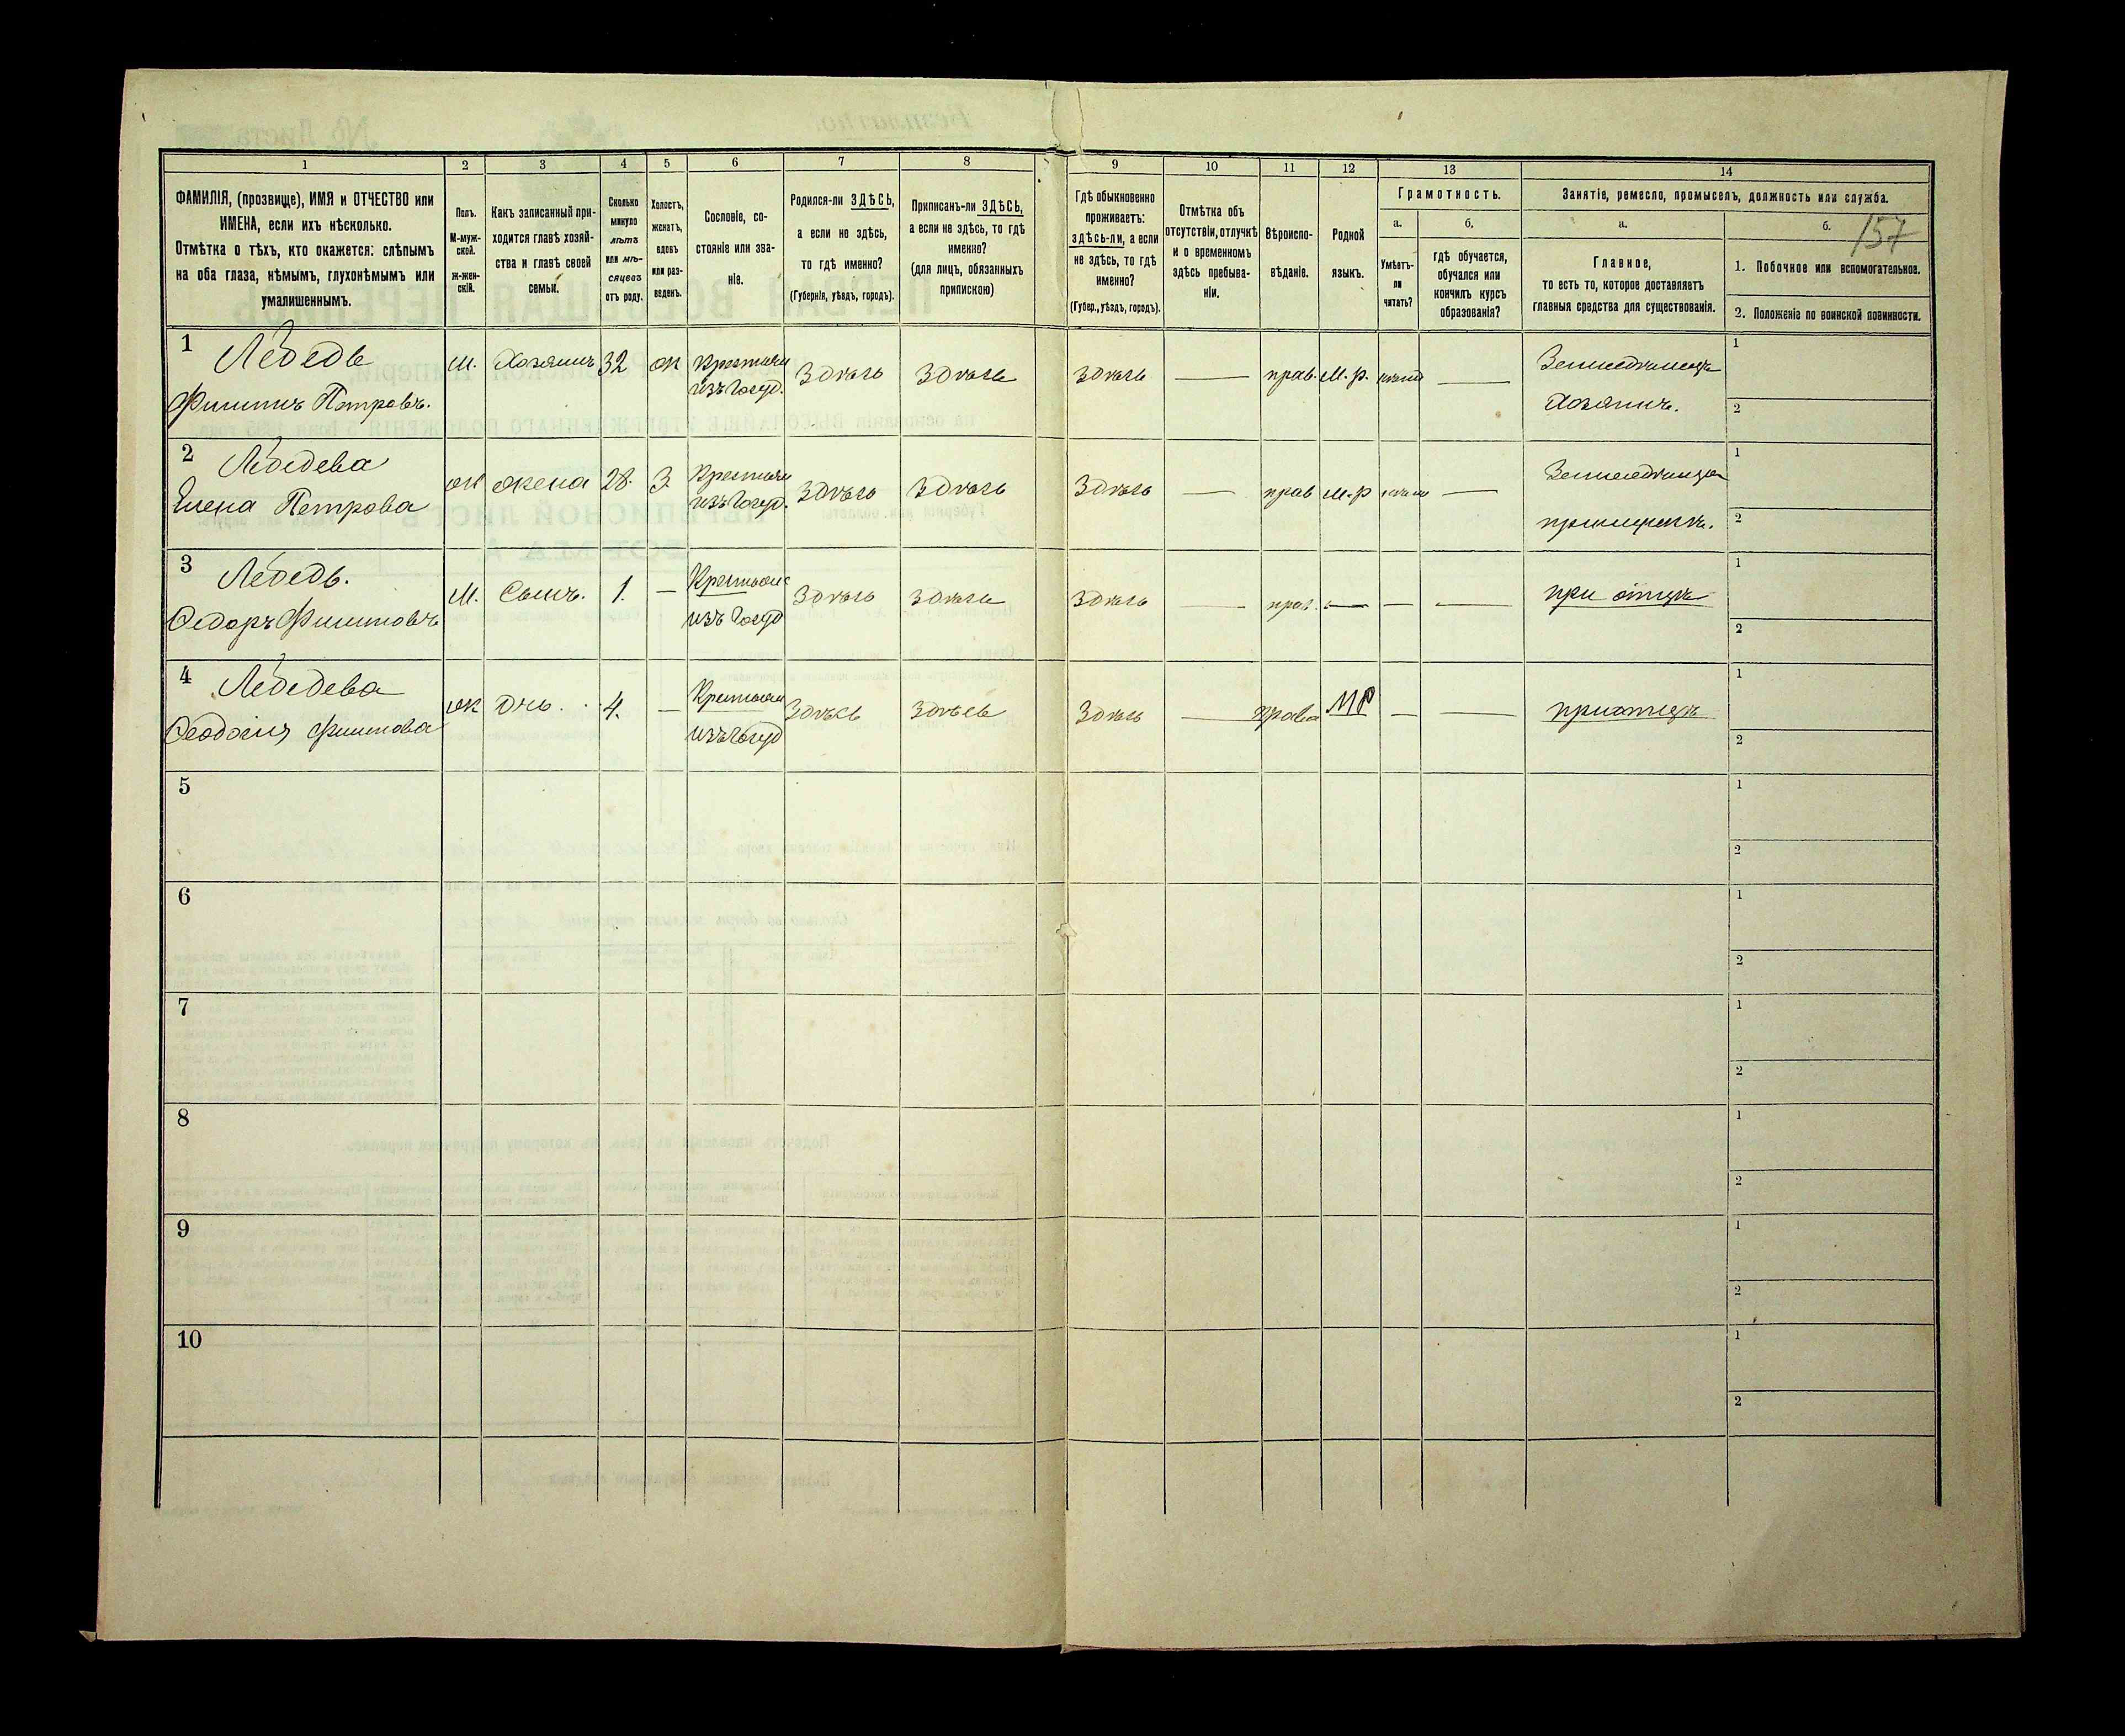 1 2 3 4 5 6 7 8 9 10 11 12 13 14
ФАМИЛІЯ, (прозвище), ИМЯ и ОТЧЕСТВО или
ИМЕНА, если ихъ нѣсколько.
Отмѣтка о тѣхъ, кто окажется: слѣпымъ
на оба глаза, нѣмымъ, глухонѣмымъ или
умалишеннымъ.
Полъ.
М-муж-
ской.
ж-жен-
скій.
Какъ записанный при-
ходится главѣ хозяй-
ства и главѣ своей
семьи.
Сколько
минуло
лѣтъ
или мѣ-
сяцевъ
отъ роду.
Холостъ,
женатъ,
вдовъ
или раз-
веденъ.
Сословіе, со-
стояніе или зва-
ніе.
Родился-ли ЗДѢСЬ,
а если не здѣсь,
то гдѣ именно?
(Губернія, уѣздъ, городъ).
Приписанъ-ли ЗДѢСЬ,
а если не здѣсь, то гдѣ
именно?
(для лицъ, обязанныхъ
припискою)
Гдѣ обыкновенно
проживаетъ:
здѣсь-ли, а если
не здѣсь, то гдѣ
именно?
(Губер., уѣздъ, городъ).
Отмѣтка объ
отсутствіи, отлучкѣ
и о временномъ
здѣсь пребыва-
ніи.
Вѣроиспо-
вѣданіе.
Родной
языкъ.
Грамотность.
а.
Умѣетъ-
ли
читать?
б.
гдѣ обучается,
обучался или
кончилъ курсъ
образованія?
Занятіе, ремесло, промыселъ, должность или служба.
а.
Главное,
то есть то, которое доставляетъ
главныя средства для существованія.
б.
157
1. Побочное или вспомогательное.
2. Положеніе по воинской повинности.
1 Лебедь м. Хозяинъ 32 ж Крестьян здѣсь здѣсь здѣсь — прав. м. р. — Земледѣлецъ 1
Филипъ Петровъ. изъ Госуд. Хозяинъ. 2
2 Лебедева ж жена 28. З. Крестьян здѣсь здѣсь здѣсь — прав м.р — Земледѣлица 1
Елена Петрова изъ Госуд. 2
3 Лебедь. м. Сынъ. 1. — Крестьян здѣсь здѣсь здѣсь — прав. — — — при отцѣ 1
Федоръ Филиповъ изъ Госуд 2
4 Лебедева ж дчь. 4. — Крестьян здѣсь здѣсь здѣсь — права МР — — при отцѣ 1
Феодосія Филипова изъ Госуд 2
5 1
2
6 1
2
7 1
2
8 1
2
9 1
2
10 1
2